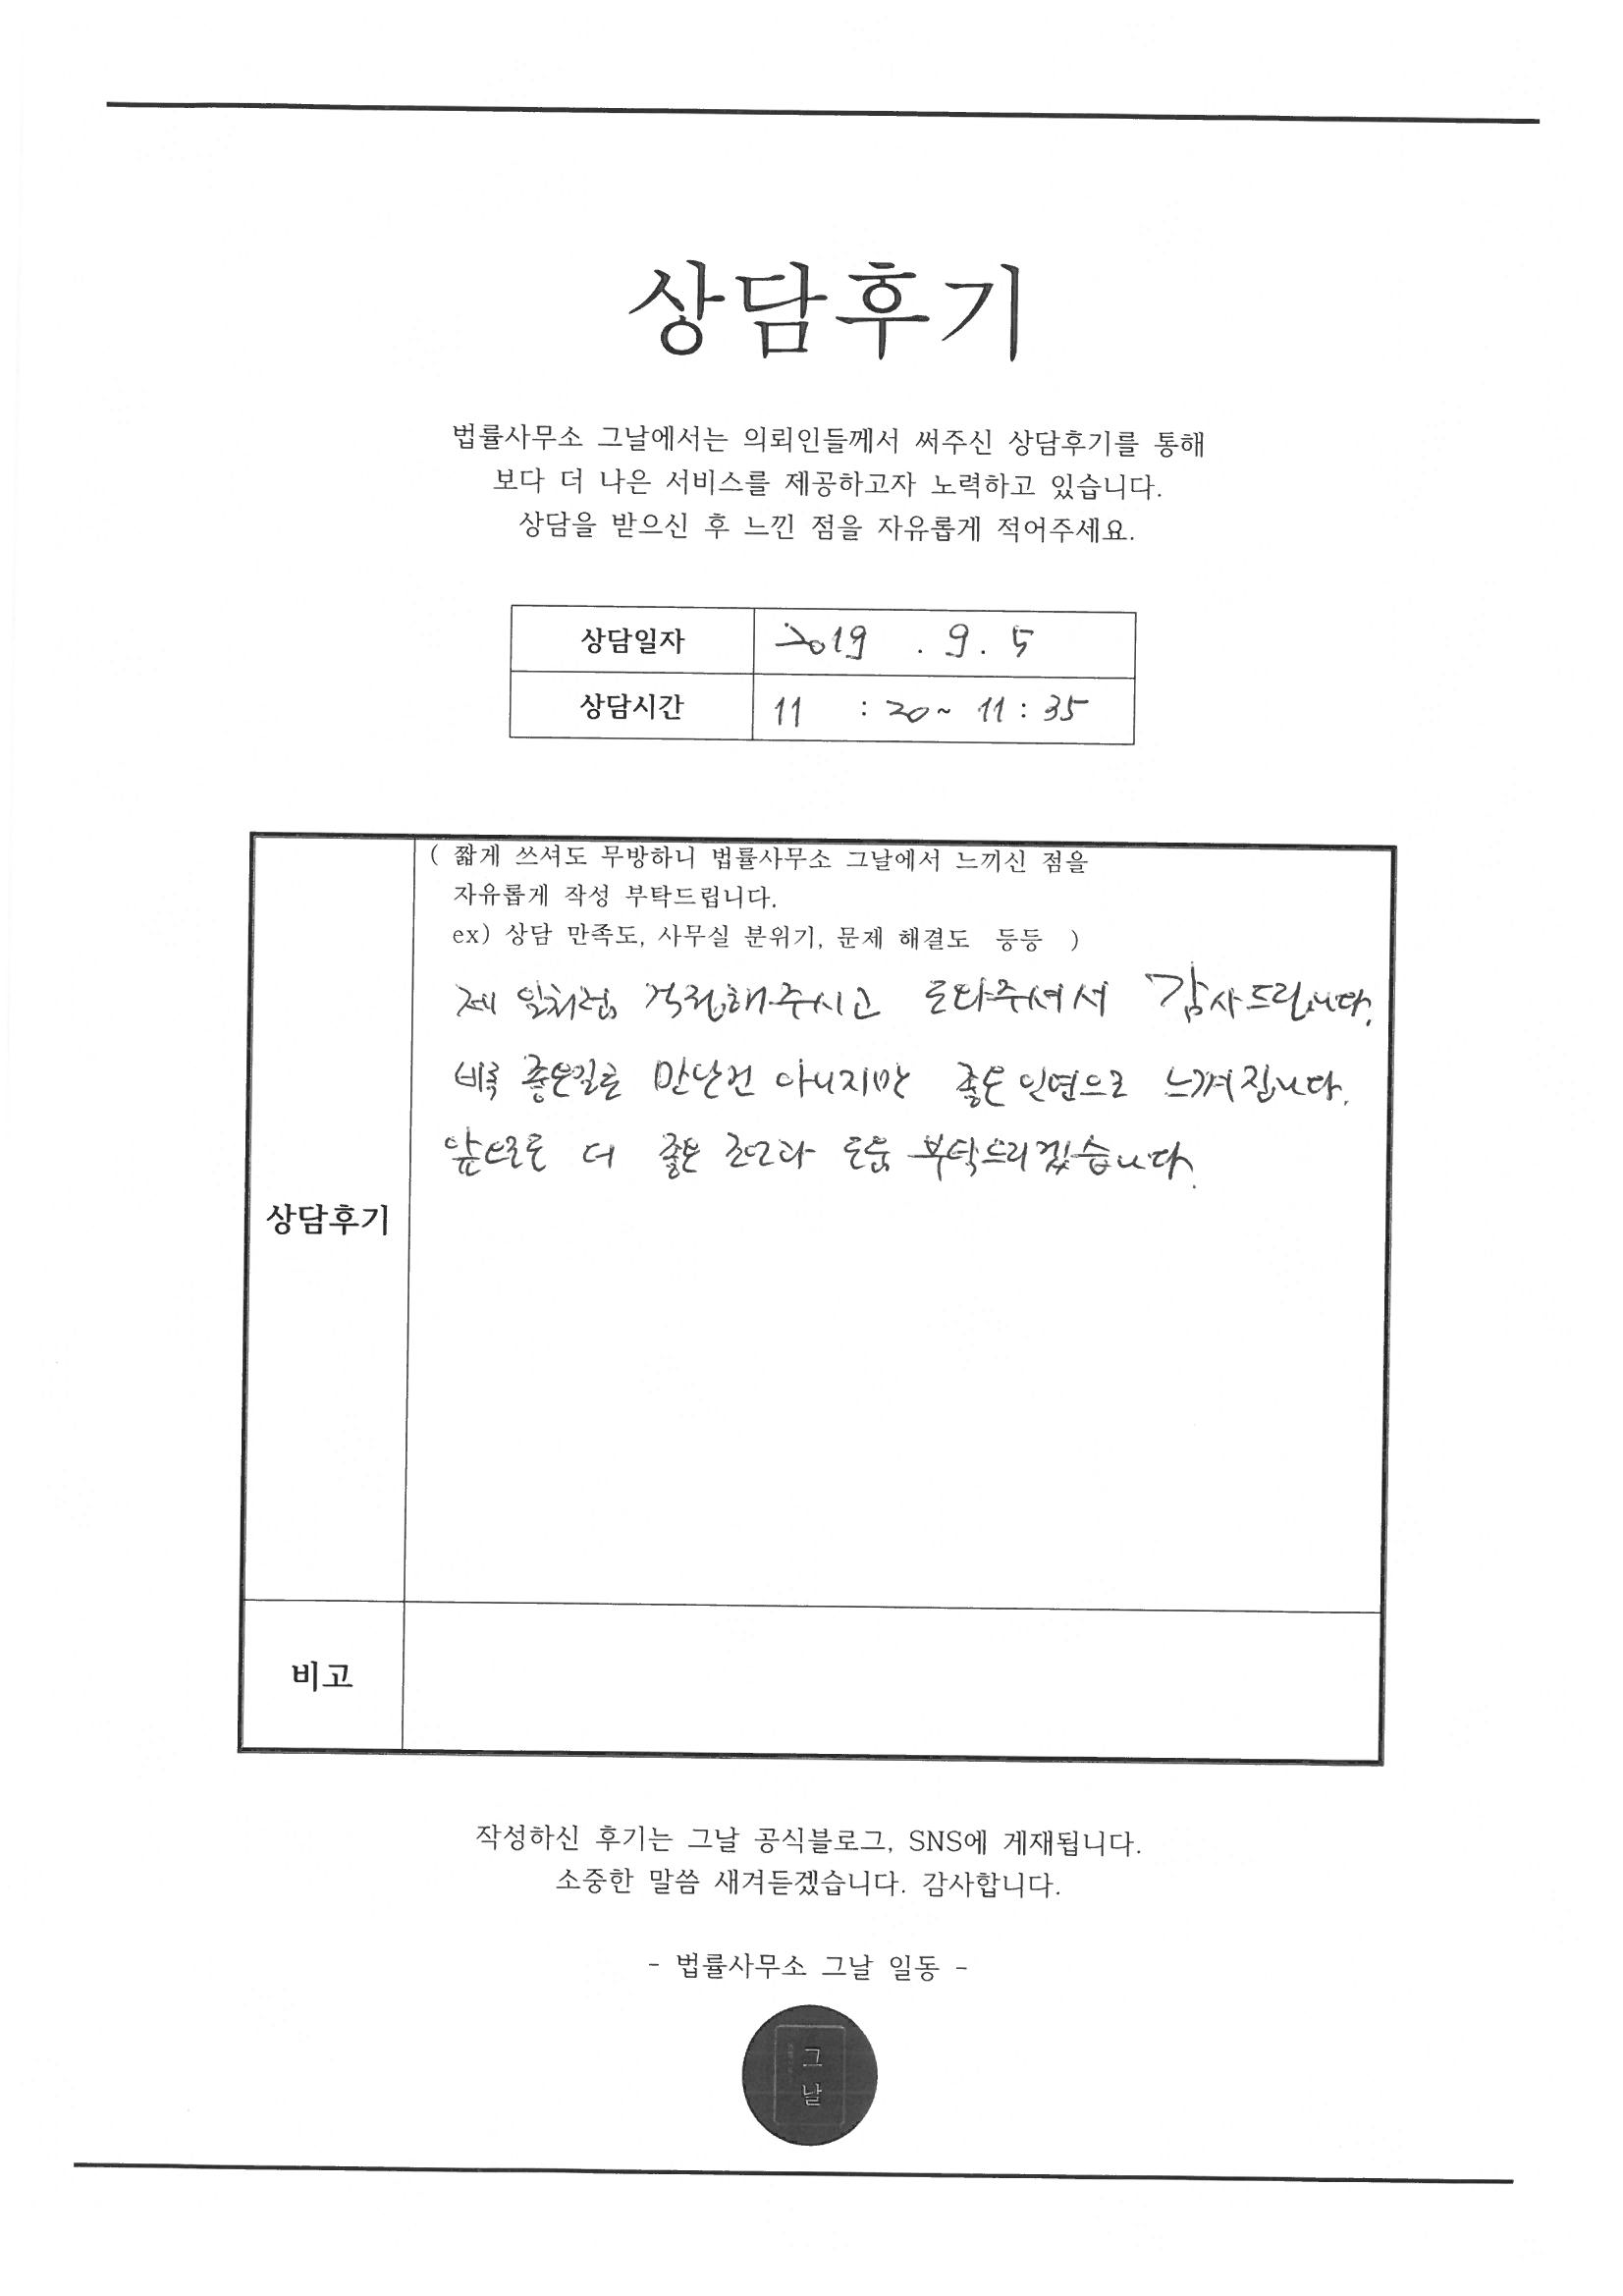 상담후기
법률사무소 그날에서는 의뢰인들께서 써주신 상담후기를 통해
보다 더 나은 서비스를 제공하고자 노력하고 있습니다.
상담을 받으신 후 느낀 점을 자유롭게 적어주세요.
상담일자 2019 . 9 . 5
상담시간 11 : 20 ~ 11 : 35
( 짧게 쓰셔도 무방하니 법률사무소 그날에서 느끼신 점을
자유롭게 작성 부탁드립니다.
ex) 상담 만족도, 사무실 분위기, 문제 해결도 등등 )
제 일처럼 걱정해주시고 도와주셔서 감사드립니다.
비록 좋은일로 만난건 아니지만 좋은 인연으로 느껴집니다.
앞으로도 더 좋은 결과 도움 부탁드리겠습니다.
상담후기
비고
작성하신 후기는 그날 공식블로그, SNS에 게재됩니다.
소중한 말씀 새겨듣겠습니다. 감사합니다.
- 법률사무소 그날 일동 -
그
날